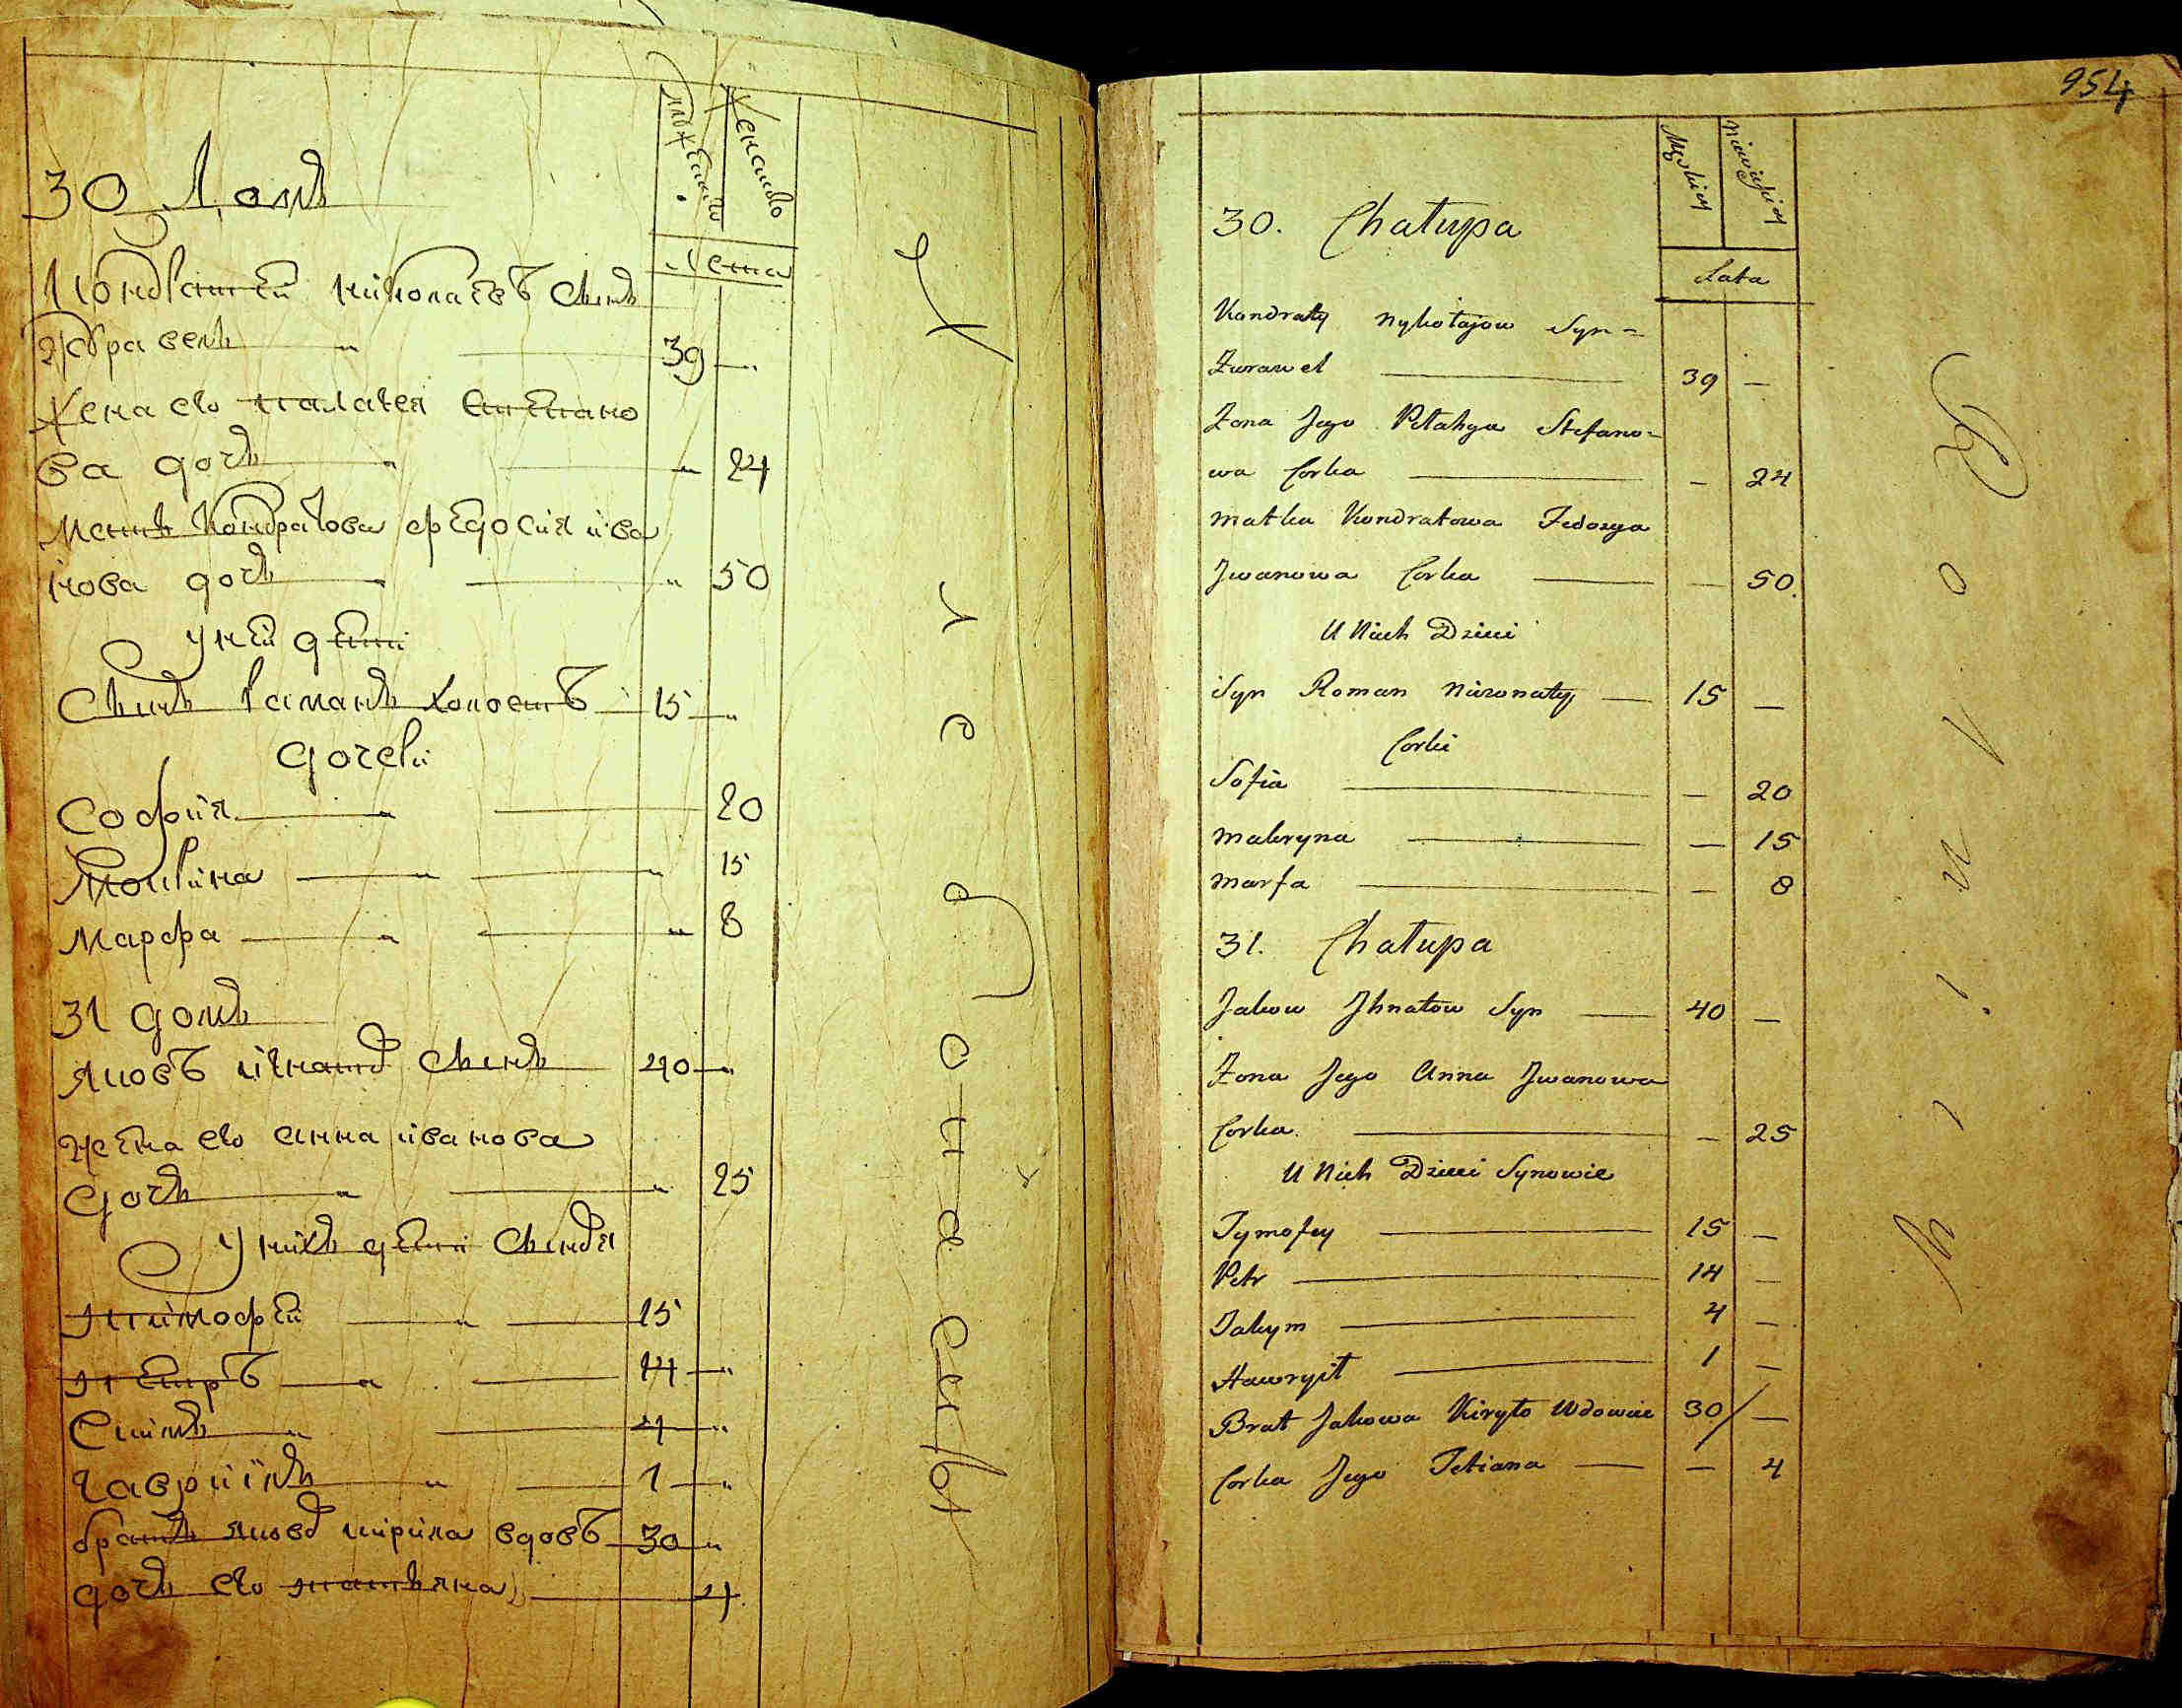 мужеска
женска
30 Домъ
Лета
Кондратей николаевъ сынъ
журавель " 39 — "
жена его палагея степано
ва дочь " — " 24
Мать Кондратова федосия ива
нова дочь " — " 50
у ней дети
Сынъ Раманъ холостъ — 15 — "
дочери
София — " — 20
Мокрина — " — " 15
Марфа — " — " 8
31 домъ
яковъ игнатовъ сынъ 40 — "
жена его анна иванова
дочь — " — " 25
у нихъ дети сыновя
тимофей — " — 15
петръ — " — 14 — "
Екимъ — " — 4 — "
гавриїлъ — " — 1 — "
братъ яковъ кирила вдовъ 30 — "
дочь его татьяна — 4
954
Męskiey
niewieściey
30. Chałupa
Lata
Kondraty Nykołajow Syn =
Żurawel — 39 —
Żona Jego Pełahya Stefano=
wa Corka — — 24
Matka Kondratowa Fedosya
Jwanowa Corka — — 50.
U Nich Dzieci
Syn Roman Nieżonaty — 15 —
Corki
Sofia — — 20
Makryna — — 15
Marfa — — 8
31. Chałupa
Jakow Jhnatow Syn — 40 —
Żona Jego Anna Jwanowa
Corka. — — 25
U Nich Dzieci Synowie
Tymofey — 15 —
Petr — 14 —
Jakym — 4 —
Hawryił — 1 —
Brat Jakowa Kiryło Wdowiec 30 / —
Corka Jego Tetiana — — 4